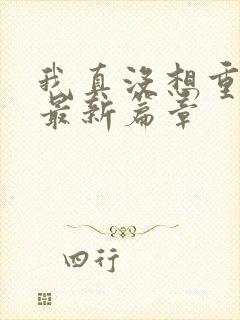 我真没想重
最新篇章
四行